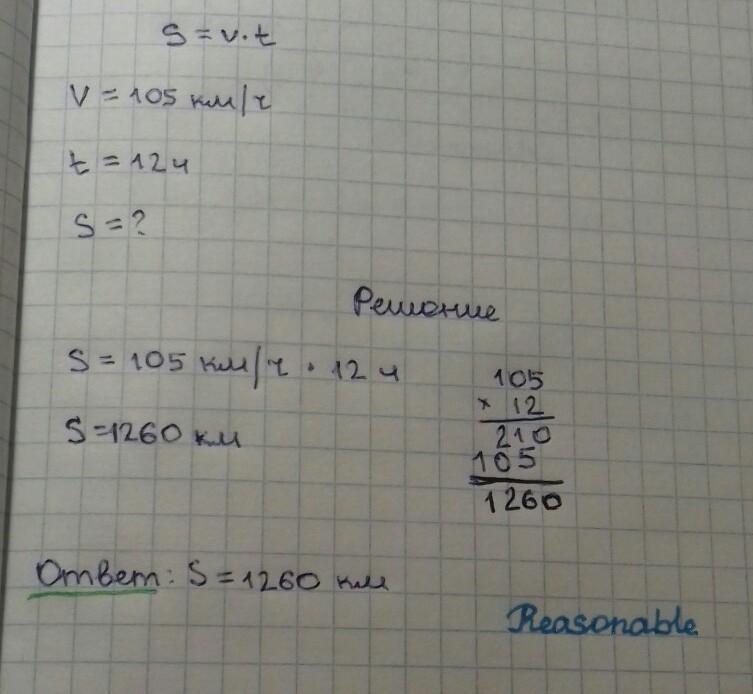 S = v · t
V = 105 км/ч
t = 12 ч
S = ?
Решение
S = 105 км/ч · 12 ч
S = 1260 км
105
× 12
210
105
1260
Ответ: S = 1260 км
Reasonable